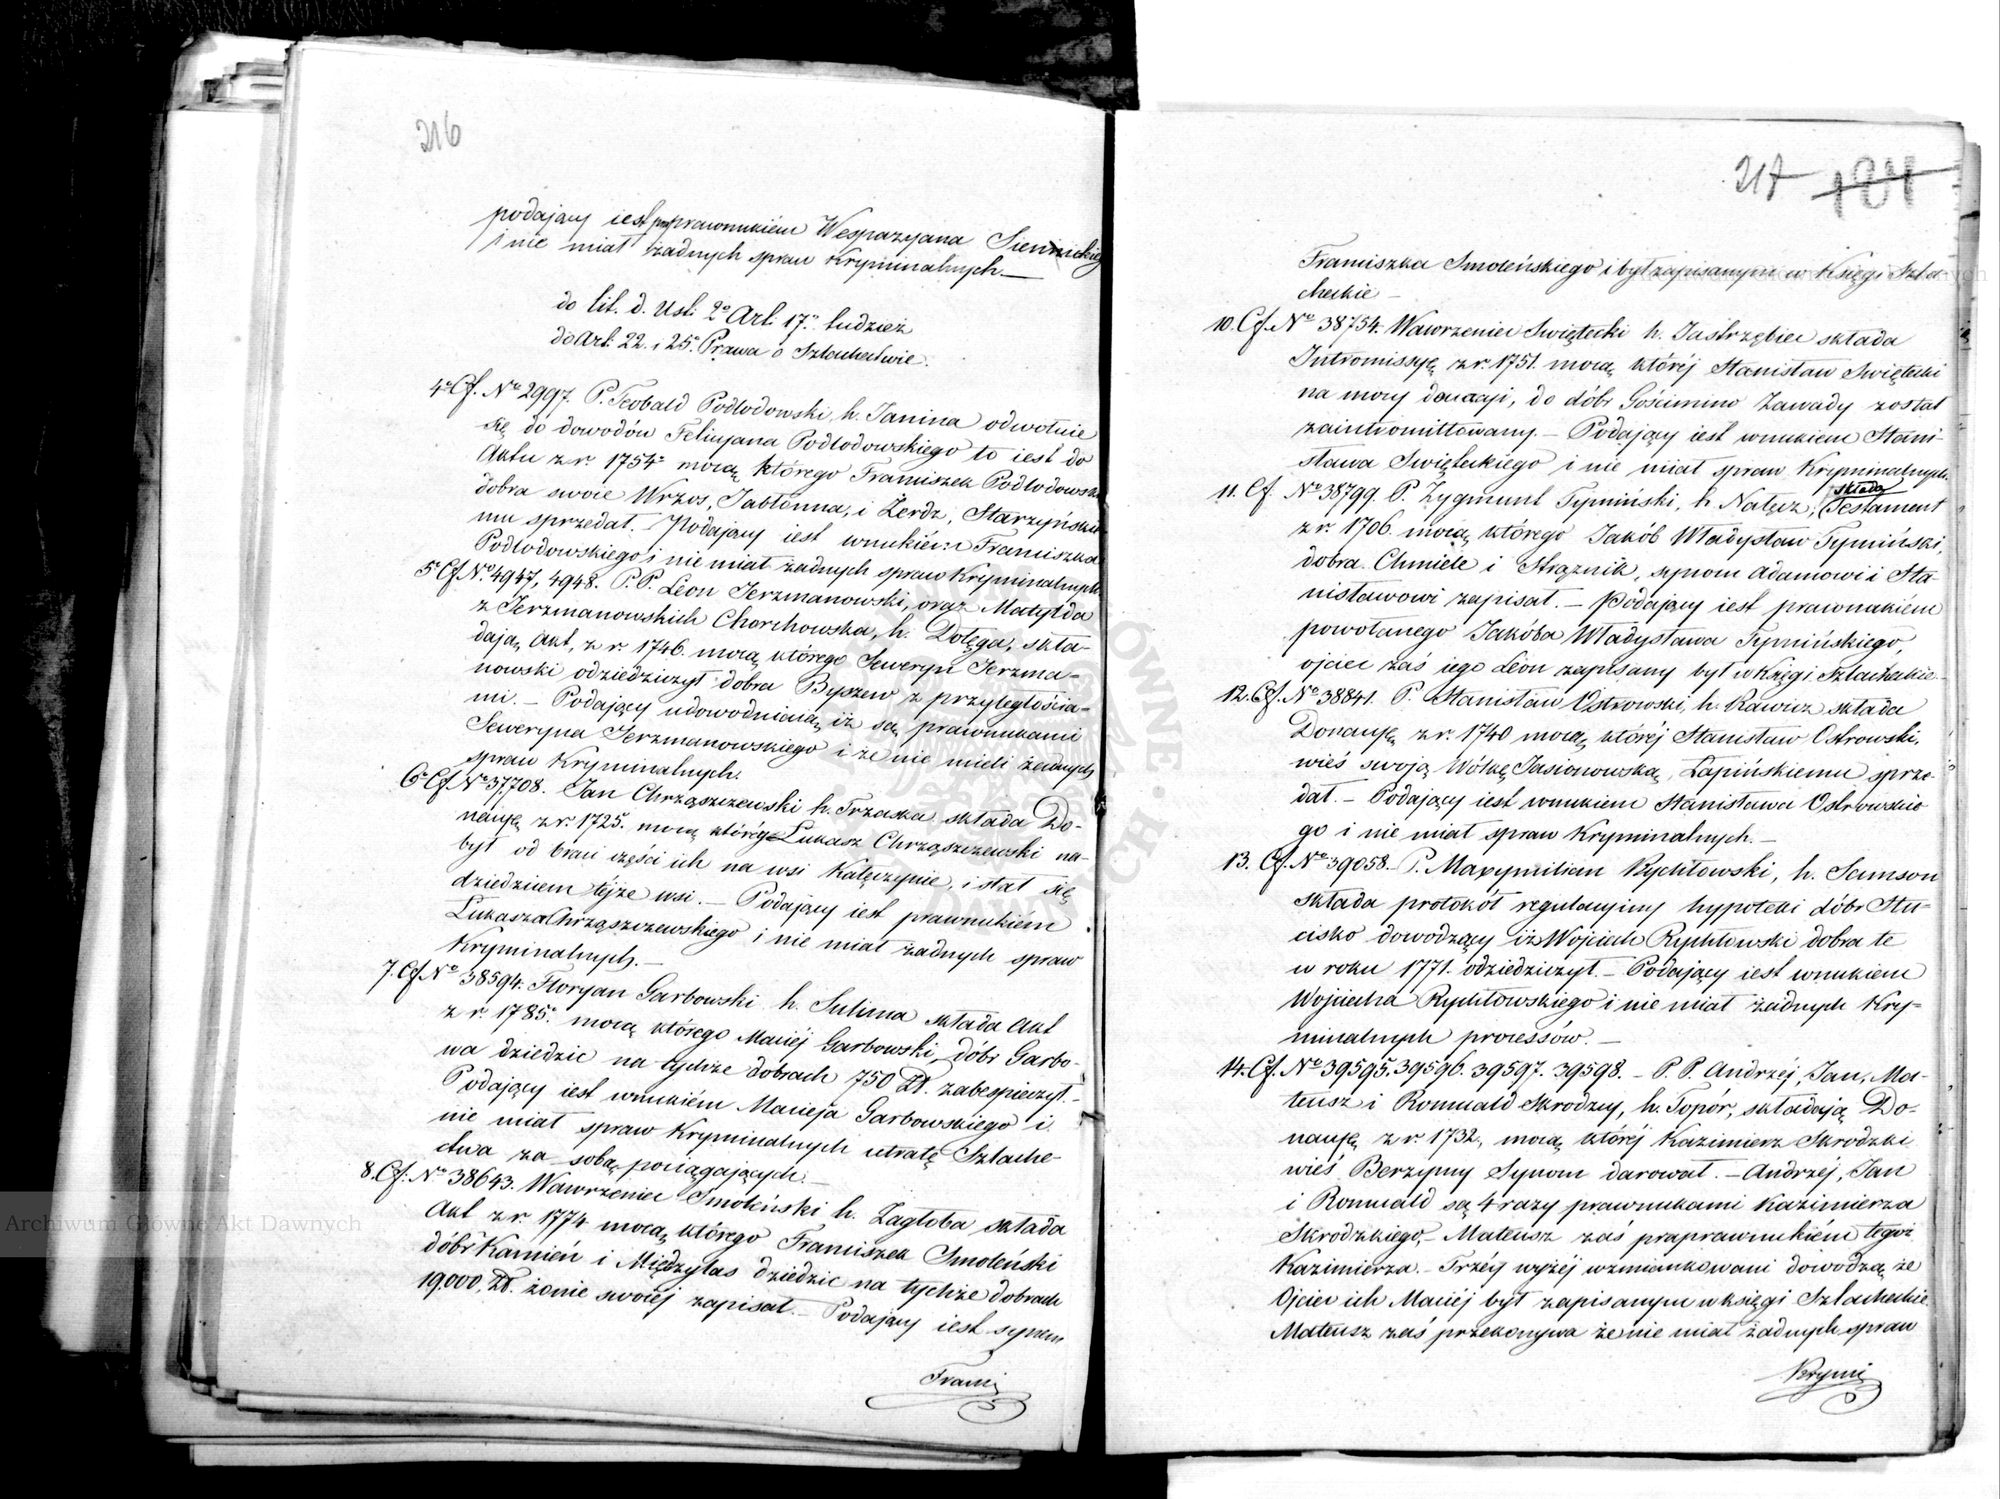 216
podający iest praprawnukiem Wespazyana Siennickieg
i nie miał żadnych spraw Kryminalnych.—
do lit. d. Ust: 2º Art: 17º tudzież
do Art: 22. i 25º Prawa o Szlachectwie.
4º Cf. Nº 2997. P. Teobald Podlodowski, h. Janina odwołuie
się do dowodów Felicyana Podlodowskiego to iest do
Aktu z r. 1754º mocą którego Franciszek Podlodowski
dobra swoie Wrzos, Jabłonna, i Zerdz, Starzyńskie
mu sprzedał. Podający iest wnukiem Franciszka
Podlodowskiego i nie miał żadnych spraw Kryminalnych
5º Cf. Nº 4947, 4948. P. P. Leon Jerzmanowski, oraz Matylda
z Jerzmanowskich Chorchowska, h. Dołęga, skła-
dają Akt, z r. 1746. mocą którego Seweryn Jerzma-
nowski odziedziczył dobra Byszew z przyległościa-
mi. — Podający udowodniaią iż są prawnukami
Seweryna Jerzmanowskiego i że nie mieli żadnych
spraw Kryminalnych.
6º Cf. Nº 37708. Jan Chrząszczewski h. Trzaska składa Do-
nacyę z r. 1725. mocą któréy Łukasz Chrząszczewski na-
był od braci części ich na wsi Kałęczynie, i stał się
dziedzicem téjże wsi. — Podający iest prawnukiém
Łukasza Chrząszczewskiego i nie miał żadnych spraw
Kryminalnych. —
7. Cf. Nº 38594. Floryan Garbowski h. Sulima składa Akt
z r. 1785. mocą którego Maciéj Garbowski, dóbr Garbo-
wa dziedzic na tychże dobrach 750 Zł. zabespieczył. —
Podający iest wnukiém Macieja Garbowskiego i
nie miał spraw Kryminalnych utratę Szlache-
ctwa za sobą pociągających. —
8. Cf. Nº 38643. Wawrzeniec Smoleński h. Zagłoba składa
Akt z r. 1774 mocą którego Franciszek Smoleński
dóbr Kamień i Międzylas dziedzic na tychże dobrach
19000, Zł. żonie swoiéj zapisał. — Podający iest synem
Franci
217 184
Franciszka Smoleńskiego i był zapisanym w Księgi Szla
checkie —
10. Cf. Nº 38754. Wawrzeniec Swięlecki h. Jastrzębiec składa
Intromissyę z r. 1751. mocą któréj Stanisław Swięlecki
na mocy donacyi, do dóbr Gościmino Zawady został
zaintromittowany. — Podający iest wnukiem Stani-
sława Swięleckiego i nie miał spraw Kryminalnych.
11. Cf. Nº 38799. P. Zygmunt Tymiński, h. Nałęcz, składa Testament
z r. 1706. mocą którego Jakób Władysław Tymiński,
dobra Chmiele i Strąznik, synom Adamowi i Sta-
nisławowi zapisał. — Podający iest prawnukiem
powołanego Jakóba Władysława Tymińskiego,
ojciec zaś iego Leon zapisany był w Księgi Szlacheckie —
12. Cf. Nº 38841. P. Stanisław Ostrowski, h. Rawicz składa
Donacyę z r. 1740 mocą któréj Stanisław Ostrowski,
wieś swoją Wólkę Jasionowską, Łapińskiemu sprze-
dał. — Podający iest wnukiem Stanisława Ostrowskie
go i nie miał spraw Kryminalnych. —
13. Cf. Nº 39058. P. Maxymilian Rychłowski, h. Samson
składa protokół regulacyjny hypoteki dóbr Stu-
cisko dowodzący iż Wojciech Rychłowski dobra te
w roku 1771. odziedziczył. — Podający iest wnukiem
Wojciecha Rychłowskiego i nie miał żadnych Kry-
minalnych processów. —
14. Cf. Nº 39595. 39596. 39597. 39598. — P. P. Andrzéj, Jan, Ma-
teusz i Romuald Skrodzcy, h. Topór, składają Do-
nacyę z r 1732, mocą któréj Kazimierz Skrodzki
wieś Berzymy Synom darował. — Andrzéj, Jan
i Romuald są 4 razy prawnukami Kazimierza
Skrodzkiego, — Mateusz zaś praprawnukiém tegoż
Kazimierza. — Trzéy wyżéj wzmiankowani dowodzą że
Ojciec ich Maciéj był zapisanym w księgi Szlacheckie
Mateusz zaś przekonywa że nie miał żadnych spraw
Krymi
Archiwum Główne Akt Dawnych